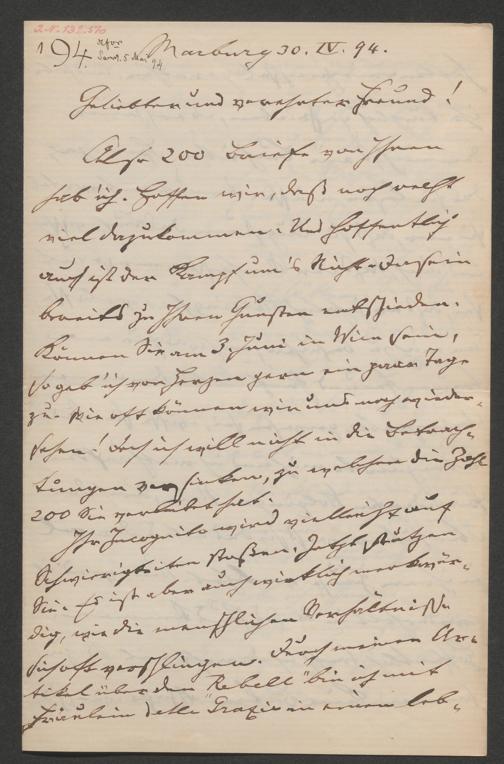 I.N. 132.570
194.
Marburg 30. IV. 94.
Geliebter und verehrter Freund!
Also 200 Briefe von Ihnen
hab ich. Hoffen wir, daß noch recht
viel dazukommen. Und hoffentlich
auch ist der Kampf um's Nicht-Dasein
bereits zu Ihren Gunsten entschieden.
Können Sie am 3. Juni in Wien sein,
so geb' ich von Herzen gern ein paar Tage
zu. Wie oft können wir uns noch wieder-
sehen! Doch ich will nicht in die Betrach-
tungen versinken, zu welchen die Zahl
200 Sie verleitet hat.
Ihr Incognito wird vielleicht auf
Schwierigkeiten stoßen. Jetzt stutzen
Sie. Es ist aber auch wirklich merkwür-
dig, wie die menschlichen Verhältnisse
sich oft verschlingen. Durch meinen Ar-
tikel über den "Rebell" bin ich mit
Fräulein delle Grazie in einen leb-